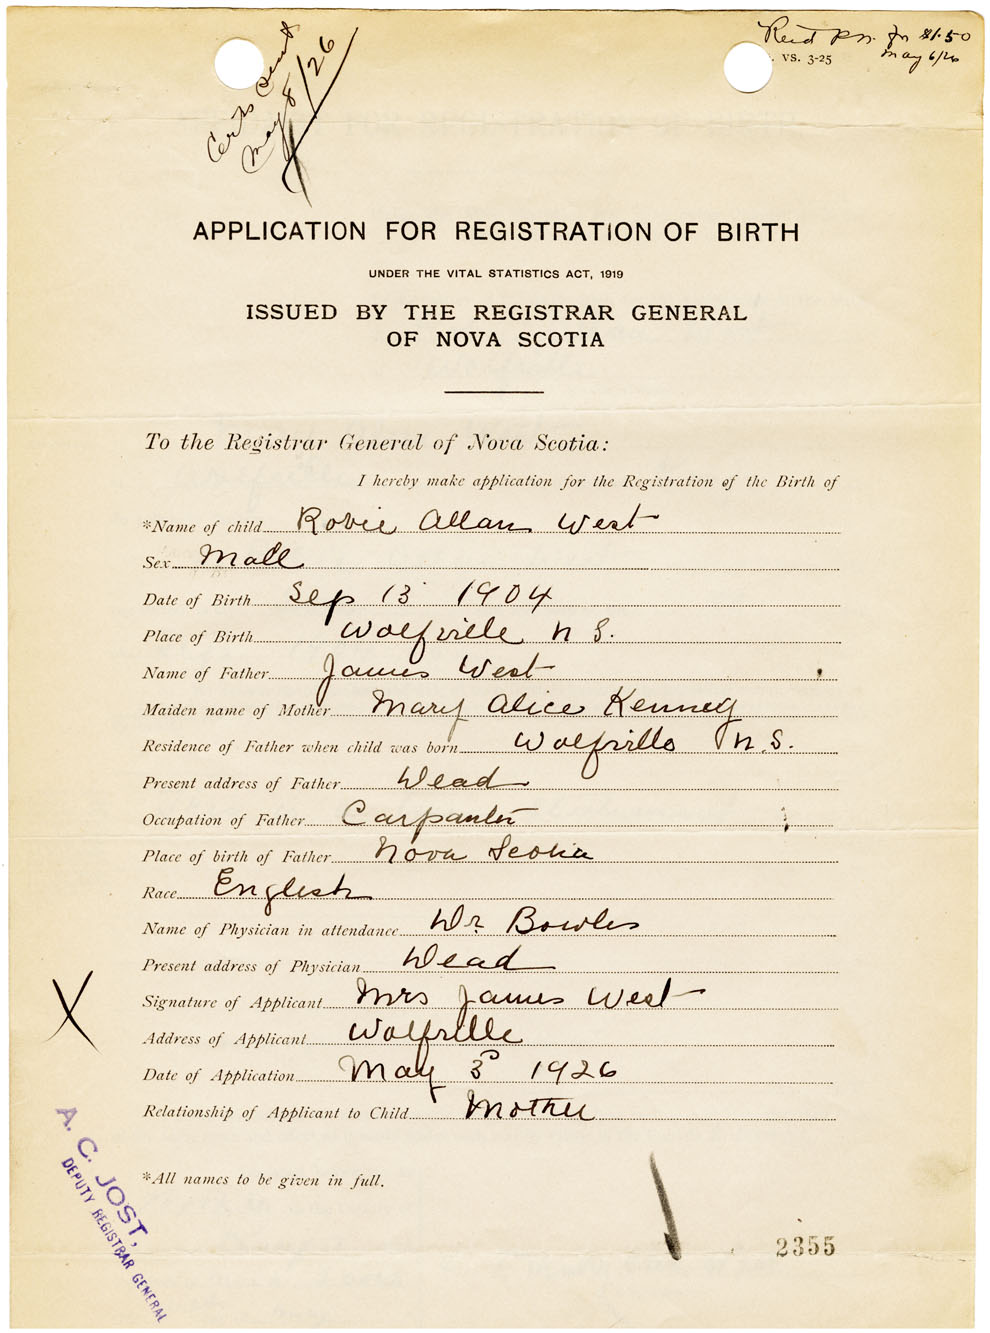 Certs Sent
May 8/26
Recd P.N. for $1.50
May 6/26
. VS. 3-25
APPLICATION FOR REGISTRATION OF BIRTH
UNDER THE VITAL STATISTICS ACT, 1919
ISSUED BY THE REGISTRAR GENERAL
OF NOVA SCOTIA
To the Registrar General of Nova Scotia:
I hereby make application for the Registration of the Birth of
*Name of child Robie Allan West
Sex Male
Date of Birth Sep 13 1904
Place of Birth Wolfville N S.
Name of Father James West
Maiden name of Mother Mary Alice Kenney
Residence of Father when child was born Wolfville N.S.
Present address of Father Dead
Occupation of Father Carpanter
Place of birth of Father Nova Scotia
Race English
Name of Physician in attendance Dr. Bowles
Present address of Physician Dead
Signature of Applicant Mrs James West
Address of Applicant Wolfville
Date of Application May 3 1926
Relationship of Applicant to Child Mother
*All names to be given in full.
A. C. JOST,
DEPUTY REGISTRAR GENERAL
2355